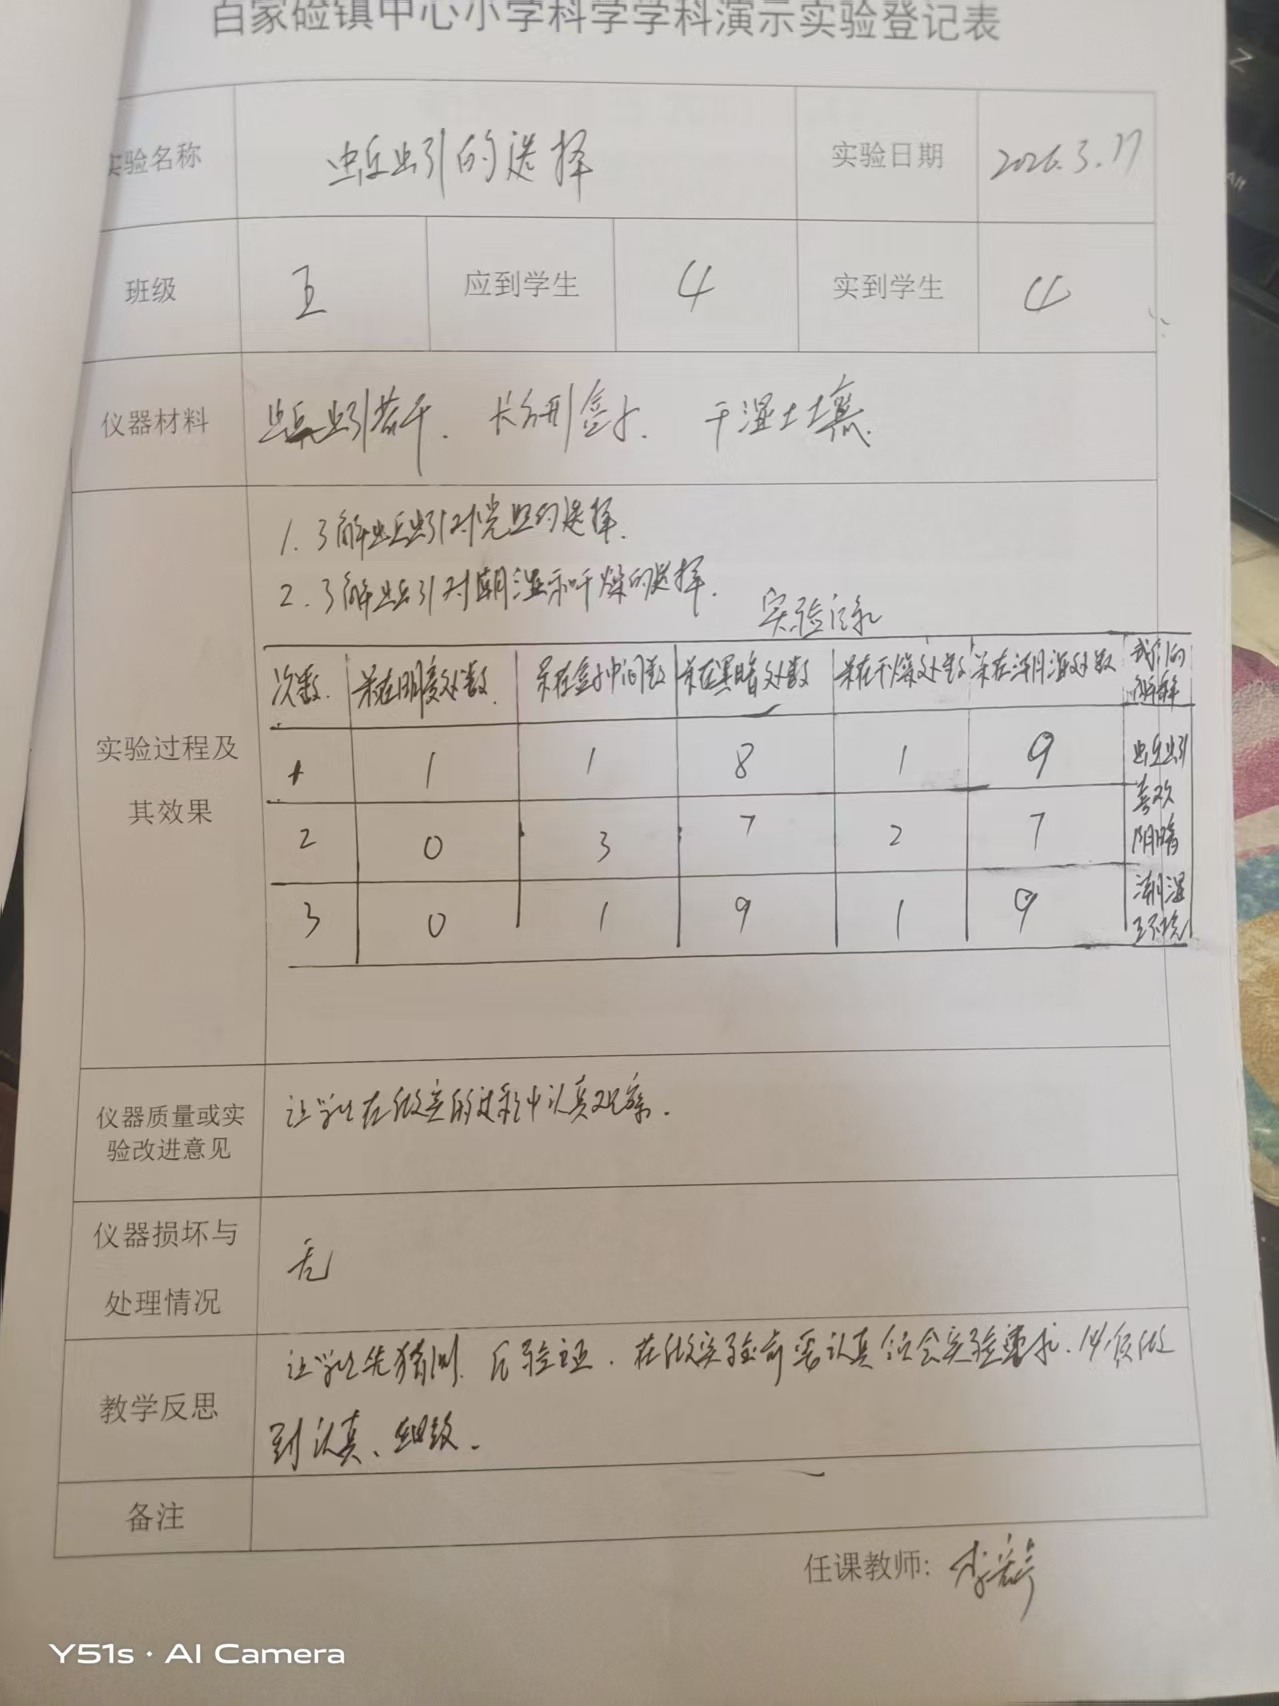 百家硷镇中心小学科学学科演示实验登记表
实验名称 蚯蚓的选择 实验日期 2026.3.17
班级 五 应到学生 4 实到学生 4
仪器材料 蚯蚓若干、长方形盒子、干湿土壤.
1.了解蚯蚓对光照的选择.
2.了解蚯蚓对潮湿和干燥的选择.
实验记录
次数 呆在明亮处数 呆在盒子中间数 呆在黑暗处数 呆在干燥处数 呆在潮湿处数 我们的解释
实验过程及其效果
1 1 1 8 1 9
2 0 3 7 2 7
3 0 1 9 1 9
蚯蚓
喜欢
阴暗
潮湿
环境
仪器质量或实验改进意见 让学生在做实的过程中认真观察.
仪器损坏与处理情况 无
教学反思 让学生先猜测.后验证.在做实验前要认真领会实验要求.必须做
到认真、细致.
备注
任课教师: 李
Y51s · AI Camera